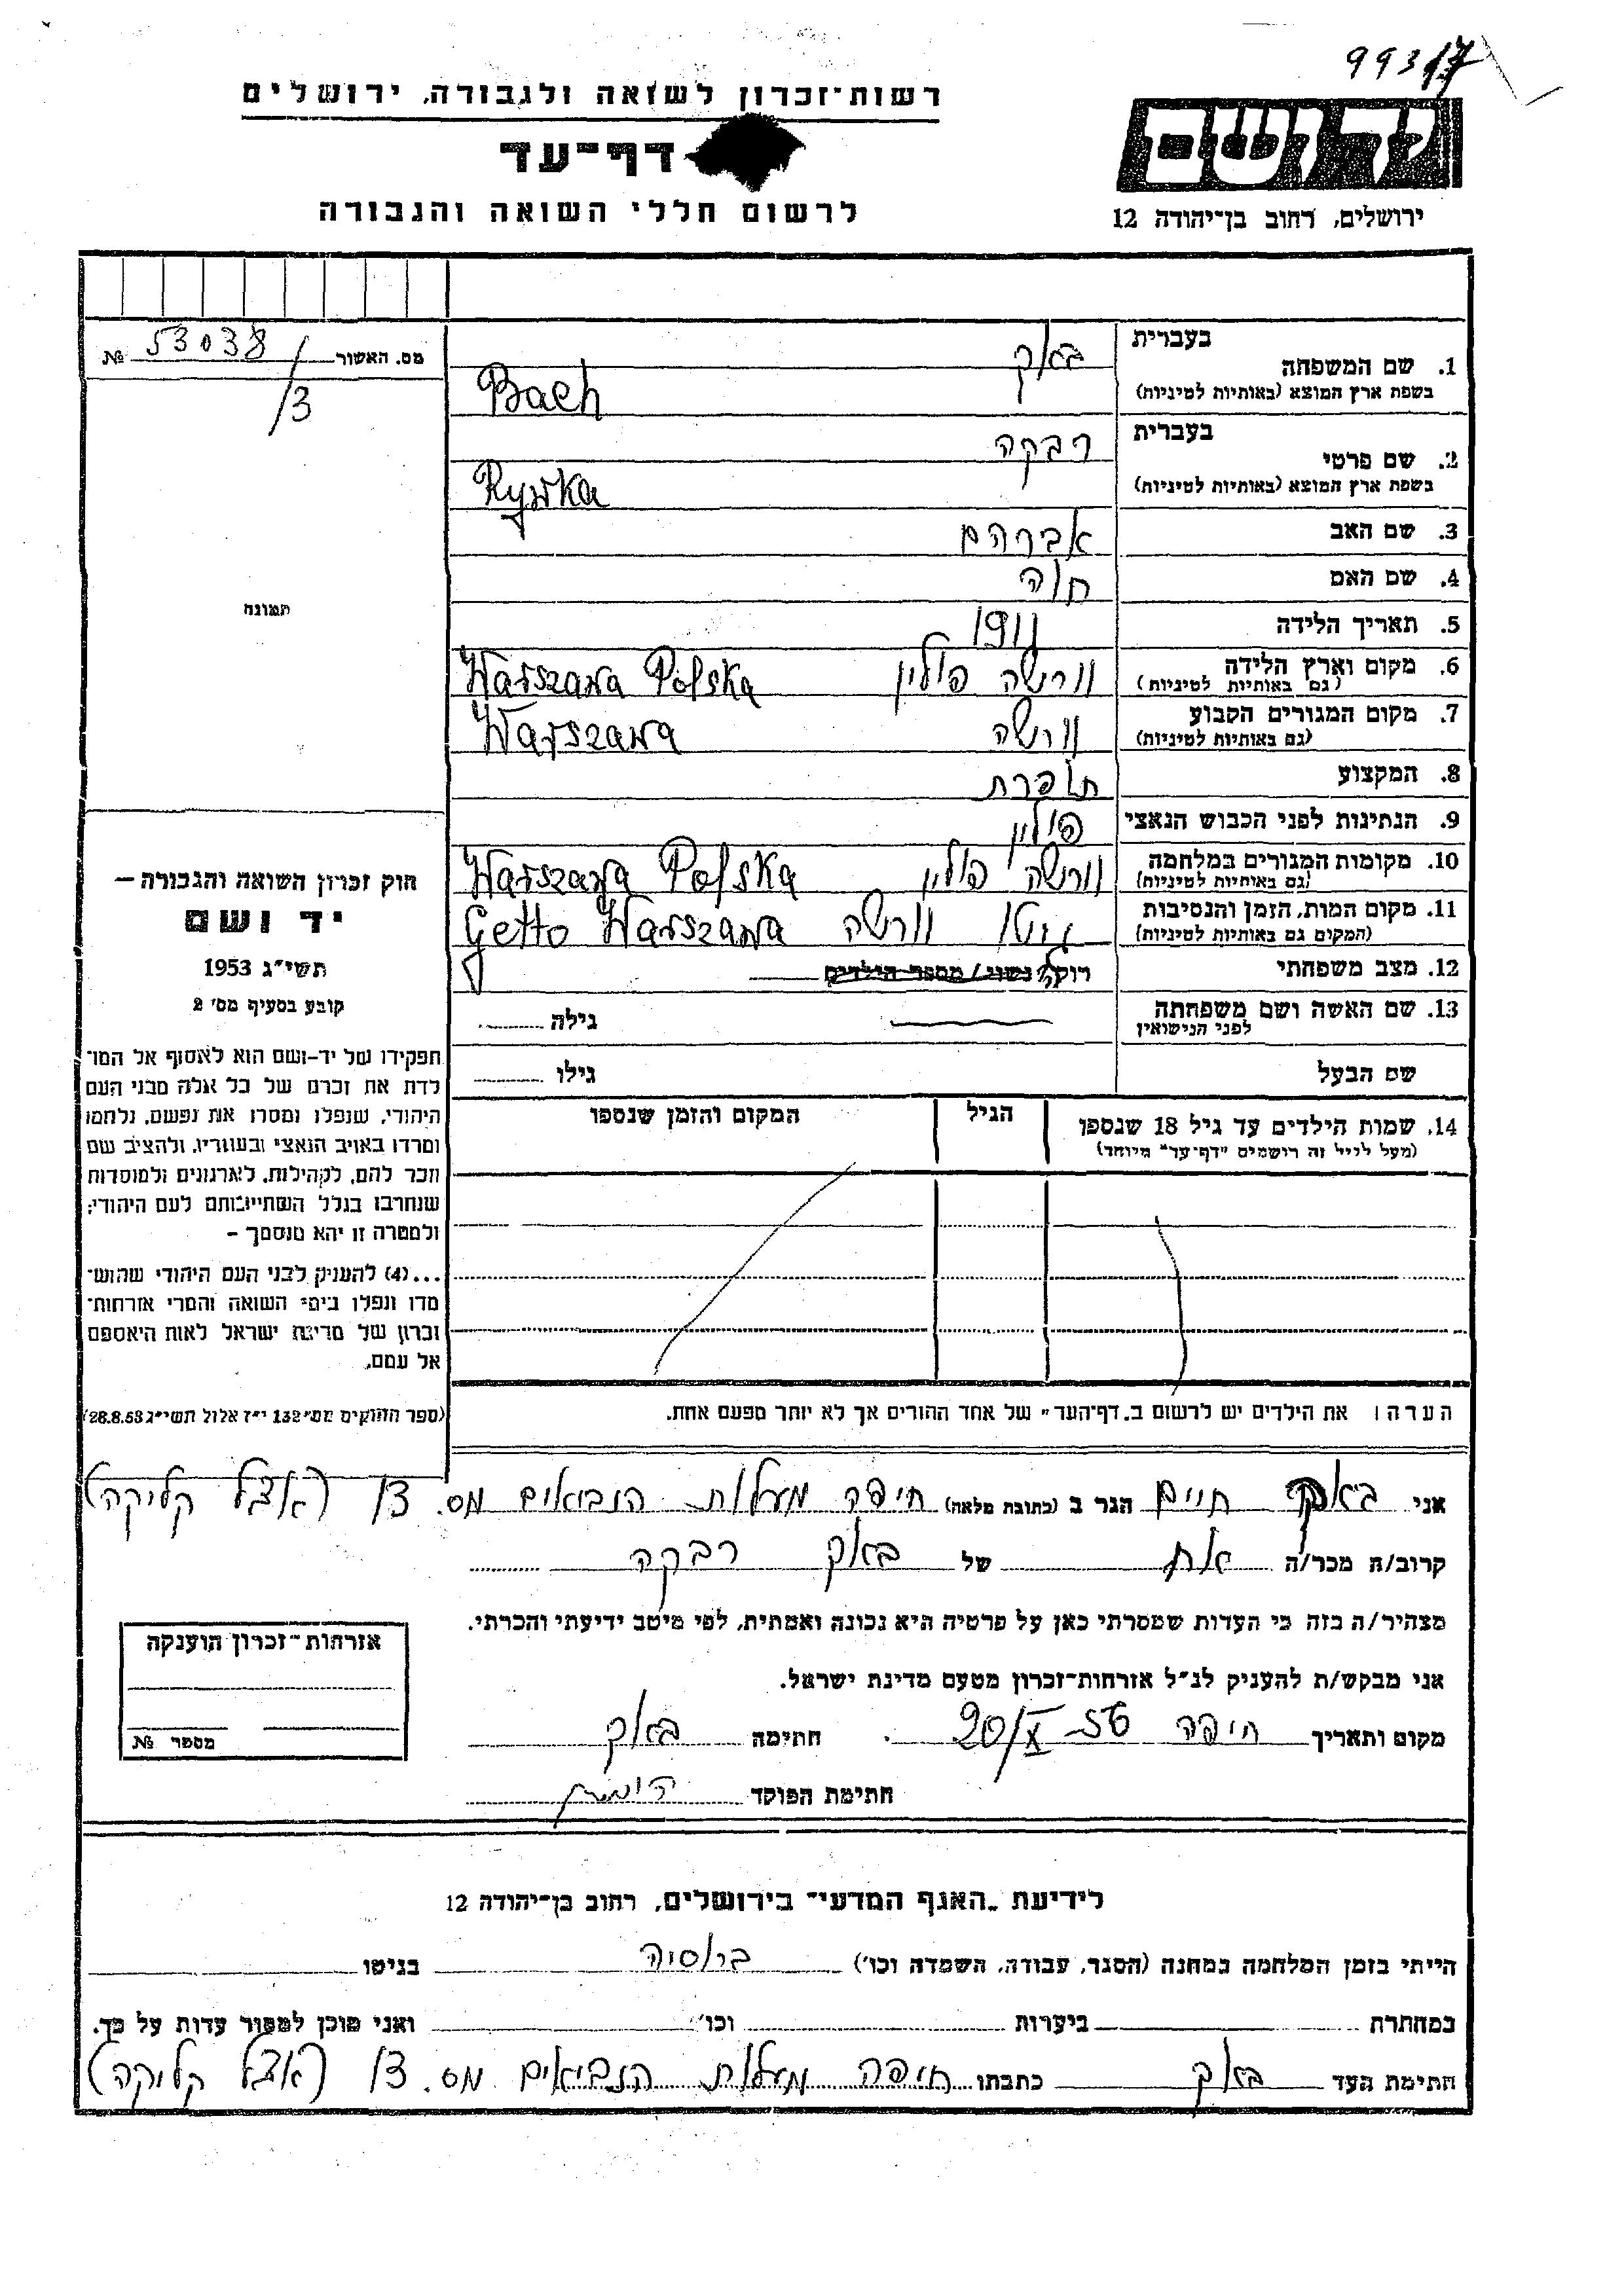 99317
רשות־זכרון לשואה ולגבורה, ירושלים
דף־עד
לרשום חללי השואה והגבורה
יד ושם
ירושלים, רחוב בן־יהודה 12
מס. האשור 53038/3 №
תמונה
חוק זכרון השואה והגבורה —
יד ושם
תשי״ג 1953
קובע בסעיף מס׳ 2
תפקידו של יד-ושם הוא לאסוף אל המו־
לדת את זכרם של כל אלה מבני העם
היהודי, שנפלו ומסרו את נפשם, נלחמו
ומרדו באויב הנאצי ובעוזריו, ולהציב שם
וזכר להם, לקהילות, לארגונים ולמוסדות
שנחרבו בגלל השתייכותם לעם היהודי;
ולמטרה זו יהא מוסמך —
...(4) להעניק לבני העם היהודי שהוש־
מדו ונפלו בימי השואה והמרי אזרחות־
זכרון של מדינת ישראל לאות היאספם
אל עמם.
(ספר החוקים מס׳ 132 י״ז אלול תשי״ג 28.8.53)
1. שם המשפחה
בעברית באק
בשפת ארץ המוצא (באותיות לטיניות) Bach
2. שם פרטי
בעברית רבקה
בשפת ארץ המוצא (באותיות לטיניות) Rywka
3. שם האב אברהם
4. שם האם חוה
5. תאריך הלידה 1911
6. מקום וארץ הלידה וורשה פולין Warszawa Polska
(גם באותיות לטיניות)
7. מקום המגורים הקבוע וורשה Warszawa
(גם באותיות לטיניות)
8. המקצוע תופרת
9. הנתינות לפני הכבוש הנאצי פולין
10. מקומות המגורים במלחמה וורשה פולין Warszawa Polska
(גם באותיות לטיניות)
11. מקום המות, הזמן והנסיבות גיטו וורשה Getto Warszawa
(המקום גם באותיות לטיניות)
12. מצב משפחתי רוקה נשוי / מספר הילדים
13. שם האשה ושם משפחתה גילה
לפני הנישואין
שם הבעל גילו
14. שמות הילדים עד גיל 18 שנספו הגיל המקום והזמן שנספו
(מעל לגיל זה רושמים "דף־עד" מיוחד)
הערה: את הילדים יש לרשום ב„דף־העד" של אחד ההורים אך לא יותר מפעם אחת.
אני באק חיים הגר ב (כתובת מלאה) חיפה מעלות הנביאים מס. 13 (אצל קליקה)
קרוב/ה מכר/ה אח של באק רבקה
מצהיר/ה בזה כי העדות שמסרתי כאן על פרטיה היא נכונה ואמתית, לפי מיטב ידיעתי והכרתי.
אני מבקש/ת להעניק לנ״ל אזרחות־זכרון מטעם מדינת ישראל.
מקום ותאריך חיפה 20/X 56 חתימה באק
חתימת הפוקד
אזרחות־זכרון הוענקה
מספר №
לידיעת „האגף המדעי״ בירושלים, רחוב בן־יהודה 12
הייתי בזמן המלחמה במחנה (הסגר, עבודה, השמדה וכו׳) ברוסיה בגיטו
במחתרת ביערות וכו׳ ואני מוכן למסור עדות על כך.
חתימת העד באק כתבתו חיפה מעלות הנביאים מס. 13 (אצל קליקה)